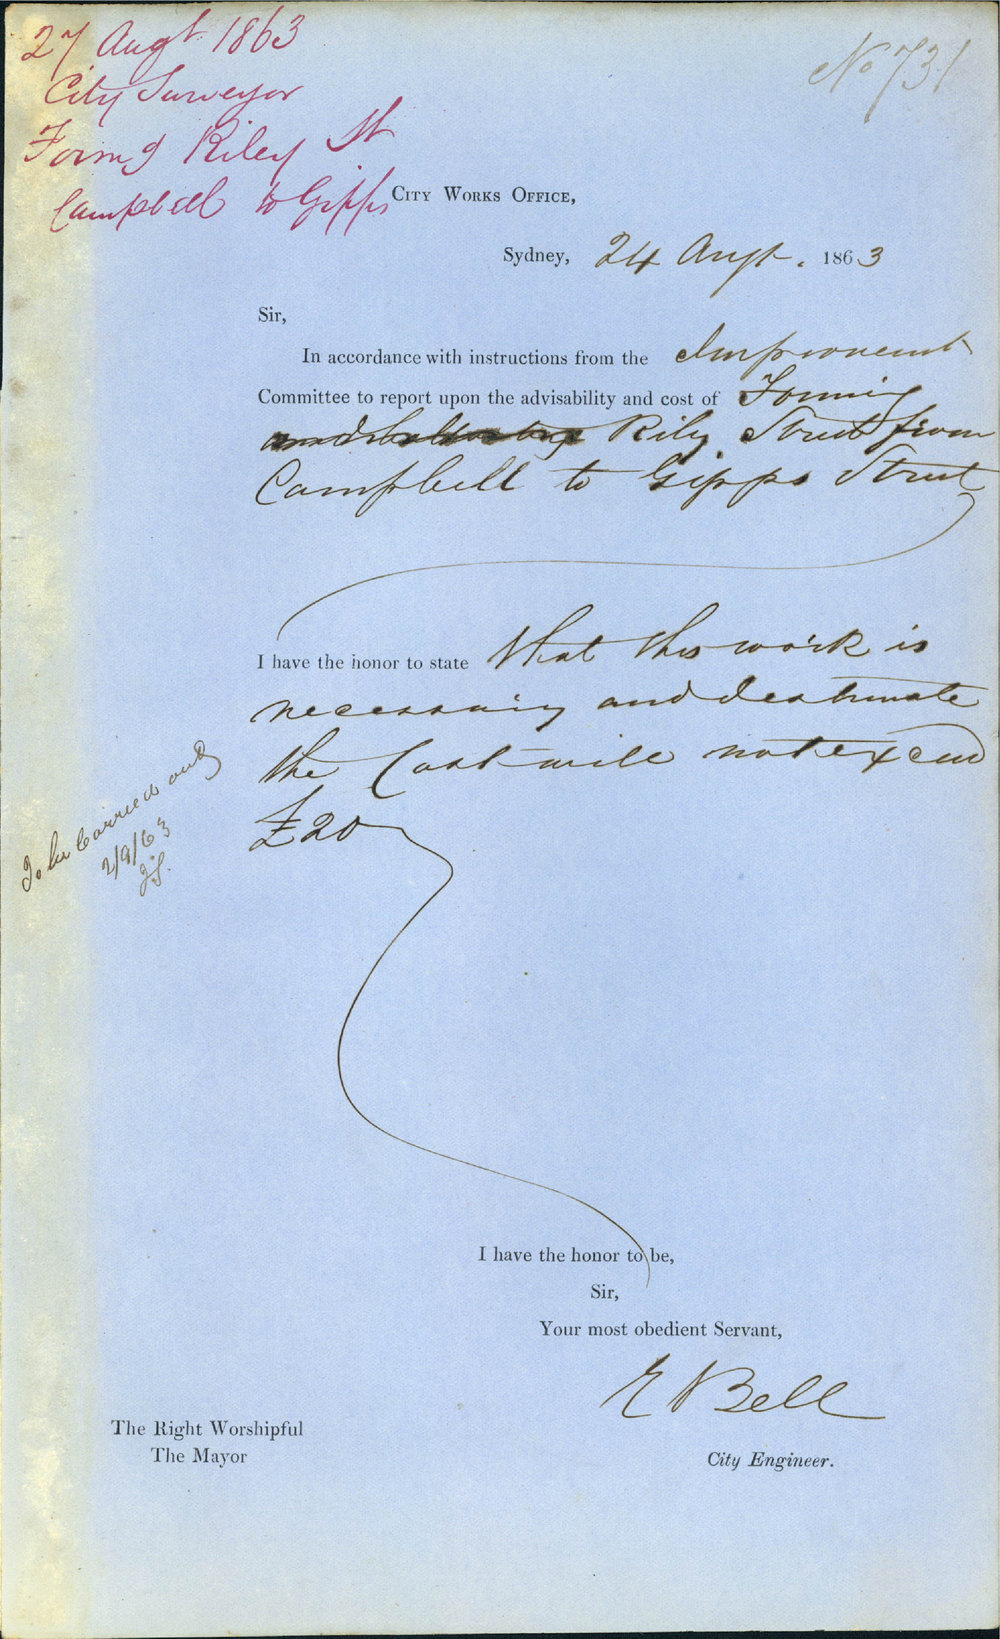 27 Augt 1863
City Surveyor
Formg Riley St
Campbell to Gipps
No 731
City Works Office,
Sydney, 24 Augt. 1863
Sir,
In accordance with instructions from the Improvement
Committee to report upon the advisability and cost of Forming
Riley Street from
Campbell to Gipps Street
I have the honor to state that this work is
necessary and I estimate
the Cost will not exceed
£20
To be Carried out
2/9/63
I have the honor to be,
Sir,
Your most obedient Servant,
E Bell
City Engineer.
The Right Worshipful
The Mayor